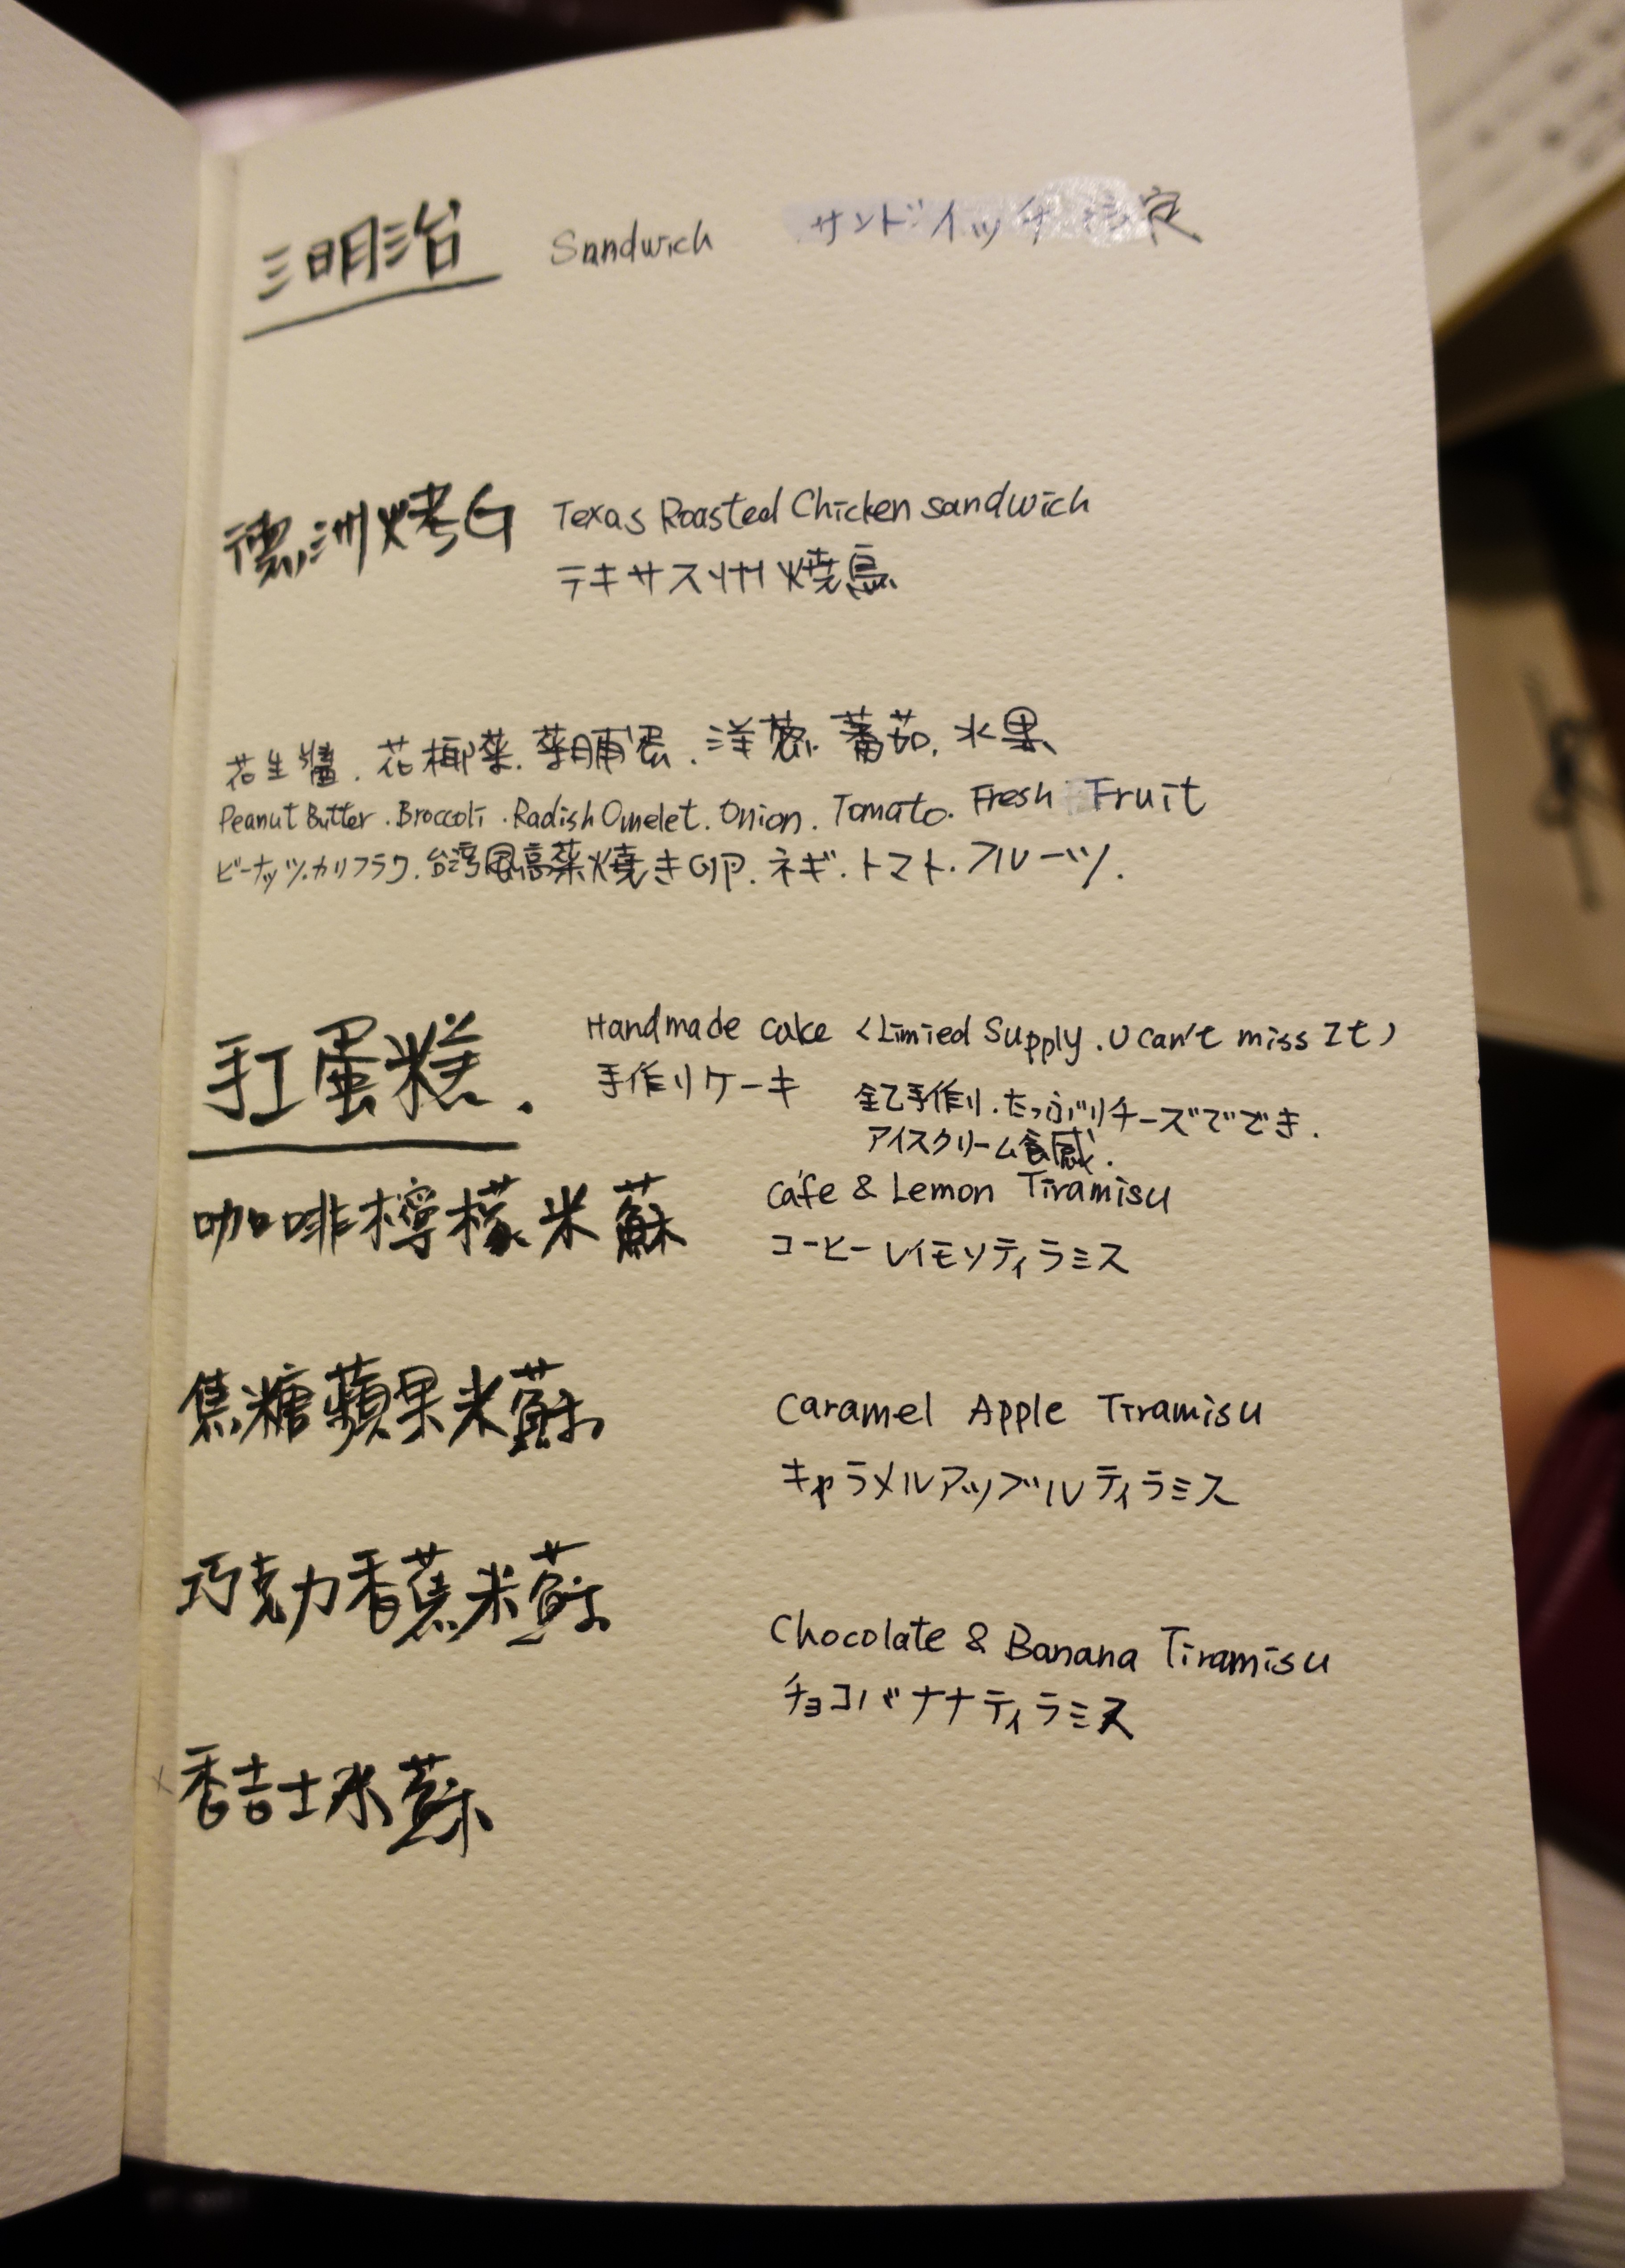 三明治 Sandwich サンドイッチ 定
德洲烤G Texas Roasted Chicken sandwich
テキサス州 焼鳥
花生醬.花椰菜.菜脯蛋.洋蔥.蕃茄.水果
Peanut Butter.Broccoli.Radish Omelet.Onion.Tomato.Fresh Fruit
ピーナッツ.カリフラワ.台湾風高菜焼き卵.ネギ.トマト.フルーツ.
手工蛋糕. Handmade cake <Limied Supply.U can't miss It)
手作りケーキ 全て手作り.たっぷりチーズででき.
アイスクリーム食感.
咖啡檸檬米蘇 Cafe & Lemon Tiramisu
コーヒーレイモンティラミス
焦糖蘋果米蘇 Caramel Apple Tiramisu
キャラメルアップルティラミス
巧克力香蕉米蘇 Chocolate & Banana Tiramisu
チョコバナナティラミス
x 香吉士米蘇